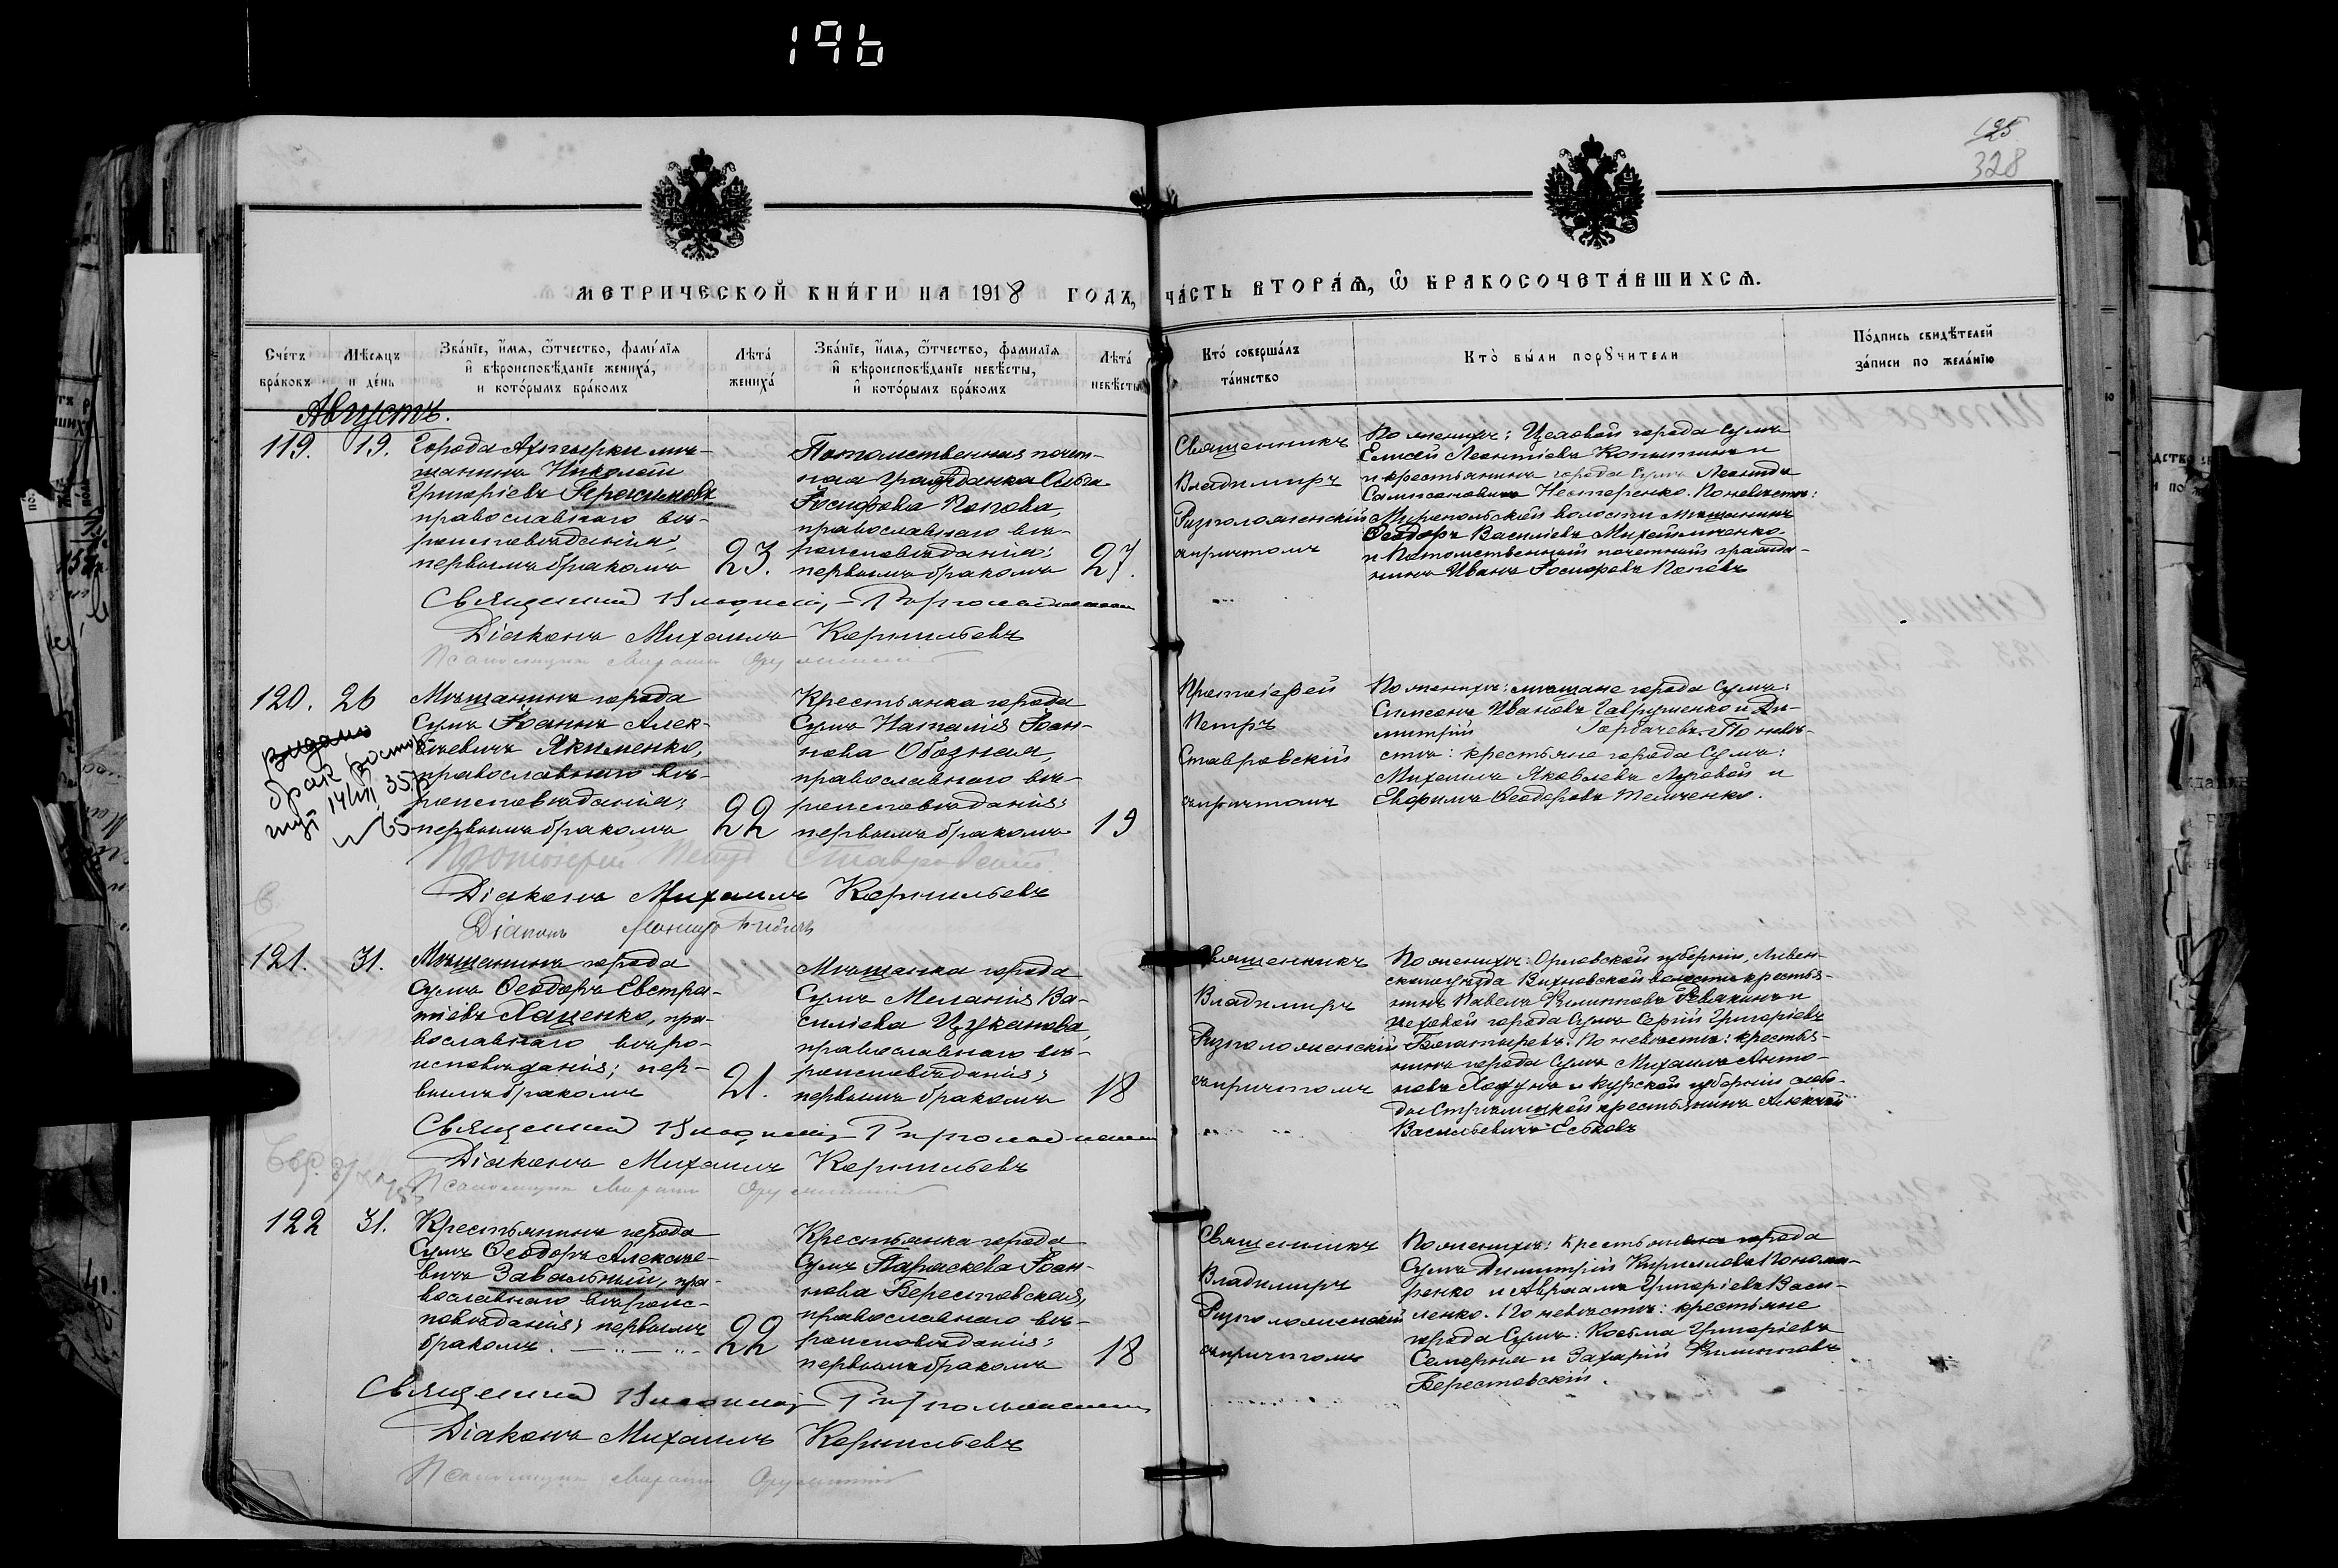 196
125
328
МЕТРИЧЕСКОЙ КНИ́ГИ НА 1918 ГОДЪ,
ЧА́СТЬ ВТОРА́Ѧ, Ѽ БРАКОСОЧЕТА́ВШИХСѦ.
Сче́тъ бра́ковъ
Мѣ́сяцъ и де́нь
Зва́нїе, и҆́мѧ, ѻ҆́тчество, фами́лїѧ
и҆ вѣроисповѣ́данїе жениха́,
и кото́рымъ бра́комъ
Лѣта́ жениха́
Зва́нїе, и҆́мѧ, ѻ҆́тчество, фамилїѧ
и҆ вѣроисповѣ́данїе невѣ́сты,
и҆ кото́рымъ бра́комъ
Лѣта́ невѣ́сты
Кто́ соверша́лъ та́инство
Кто̀ бы́ли порꙋчи́тели
По́дпись свидѣ́телей
за́писи по жела́нїю
Августъ.
119. 19.
Города Ахтырки мѣ-
щанинъ Николай
Григоріевъ
православнаго вѣ-
роисповѣданія;
первымъ бракомъ
23.
Потомственная почет-
ная гражданка Ольга
Іосифова Попова,
православнаго вѣ-
роисповѣданія;
первымъ бракомъ
27.
Священникъ
Владиміръ
Ризположенскій
съ причтомъ
По женихѣ: Цеховой города Сумъ
Елисей Леонтіевъ
и крестьянинъ города Сумъ Леонидъ
Сампсоновичъ Нестеренко. По невѣстѣ:
Миропольской волости мѣщанинъ
Ѳеодоръ Василіевъ Михайличенко
и Потомственный почетный гражда-
нинъ Иванъ Іосифовъ Поповъ
Священникъ Владиміръ Ризположенскій
Діаконъ Михаилъ Корнильевъ
Псаломщикъ
120. 26
Мѣщанинъ города
Сумъ Іоаннъ Алек-
сѣевичъ Якименко,
православнаго вѣ-
роисповѣданія;
первымъ бракомъ
22
Крестьянка города
Сумъ Наталія Іоан-
нова Обозная,
православнаго вѣ-
роисповѣданія;
первымъ бракомъ
19
Протоіерей
Петръ
Ставровскій
съ причтомъ
По женихѣ: мѣщане города Сумъ:
Симеонъ Ивановъ Гавришенко и Ди-
митрій Горбачевъ. По невѣ-
стѣ: крестьяне города Сумъ:
Михаилъ Яковлевъ Луговой и
Евфимъ Ѳеодоровъ Темченко.
видано
брак
14/VII 35 р
Протоіерей Петръ Ставровскій
Діаконъ Михаилъ Корнильевъ
Діаконъ
121. 31.
Мѣщанинъ города
Сумъ Ѳеодоръ Евстра-
тіевъ Хаценко, пра-
вославнаго вѣро-
исповѣданія; пер-
вымъ бракомъ
21.
Мѣщанка города
Сумъ Меланія Ва-
силіева Цуканова,
православнаго вѣ-
роисповѣданія;
первымъ бракомъ
18
Священникъ
Владиміръ
Ризположенскій
съ причтомъ
По женихѣ: Орловской губерніи, Ливен-
скаго уѣзда волости крестья-
нинъ Павелъ Филипповъ Ревякинъ и
цеховой города Сумъ Сергій Григоріевъ
Богатыревъ. По невѣстѣ: крестья-
нинъ города Сумъ Михаилъ Анто-
новъ и Курской губерніи слобо-
ды Стрѣлецкой крестьянинъ Алексѣй
Васильевичъ Еськовъ
Священникъ Владиміръ Ризположенскій
Діаконъ Михаилъ Корнильевъ
Псаломщикъ
122 31.
Крестьянинъ города
Сумъ Ѳеодоръ Алексѣе-
вичъ Завальный, пра-
вославнаго вѣроис-
повѣданія; первымъ
бракомъ.
22
Крестьянка города
Сумъ Параскева Іоан-
нова Берестовская,
православнаго вѣ-
роисповѣданія;
первымъ бракомъ
18
Священникъ
Владиміръ
Ризположенскій
съ причтомъ
По женихѣ: крестьяне города
Сумъ Димитрій Кирилловъ Понома-
ренко и Авраамъ Григоріевъ Васи-
ленко. По невѣстѣ: крестьяне
города Сумъ: Косьма Григоріевъ
и Захарій Филипповъ
Берестовскій.
Священникъ Владиміръ Ризположенскій
Діаконъ Михаилъ Корнильевъ
Псаломщикъ